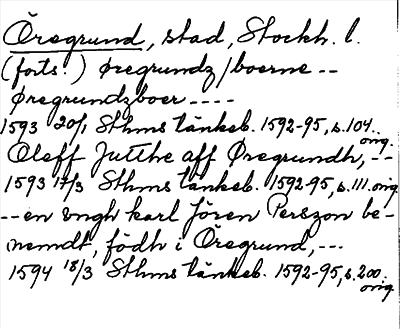 Öregrund, stad, Stockh. l.
(forts.) Øregrundz/boerne --
Øregrundzboer ----
1593 20/1 Sthms tänkeb. 1592-95, s. 104. orig.
Oleff Jutthe aff Øregrundh, --
1593 17/3 Sthms tänkeb. 1592-95, s. 111. orig
-- en vngh karl Jören Perszon be-
nemdt, födh i Öregrund, ---
1594 18/3 Sthms tänkeb. 1592-95, s. 200. orig